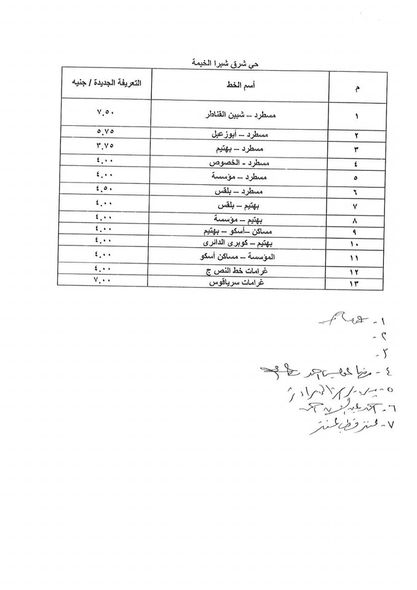 حي شرق شبرا الخيمة
م أسم الخط التعريفة الجديدة / جنيه
١ مسطرد – شبين القناطر ٧,٥٠
٢ مسطرد – أبوزعبل ٥,٧٥
٣ مسطرد – بهتيم ٣,٧٥
٤ مسطرد - الخصوص ٤,٠٠
٥ مسطرد – مؤسسة ٤,٠٠
٦ مسطرد – بلقس ٤,٥٠
٧ بهتيم – بلقس ٤,٠٠
٨ بهتيم – مؤسسة ٤,٠٠
٩ مساكن –أسكو – بهتيم ٤,٠٠
١٠ بهتيم – كوبرى الدائرى ٤,٠٠
١١ المؤسسة – مساكن أسكو ٤,٠٠
١٢ غرامات خط النص ج ٤,٠٠
١٣ غرامات سرياقوس ٧,٠٠
١-
٢-
٣-
٤-
٥-
٦-
٧-